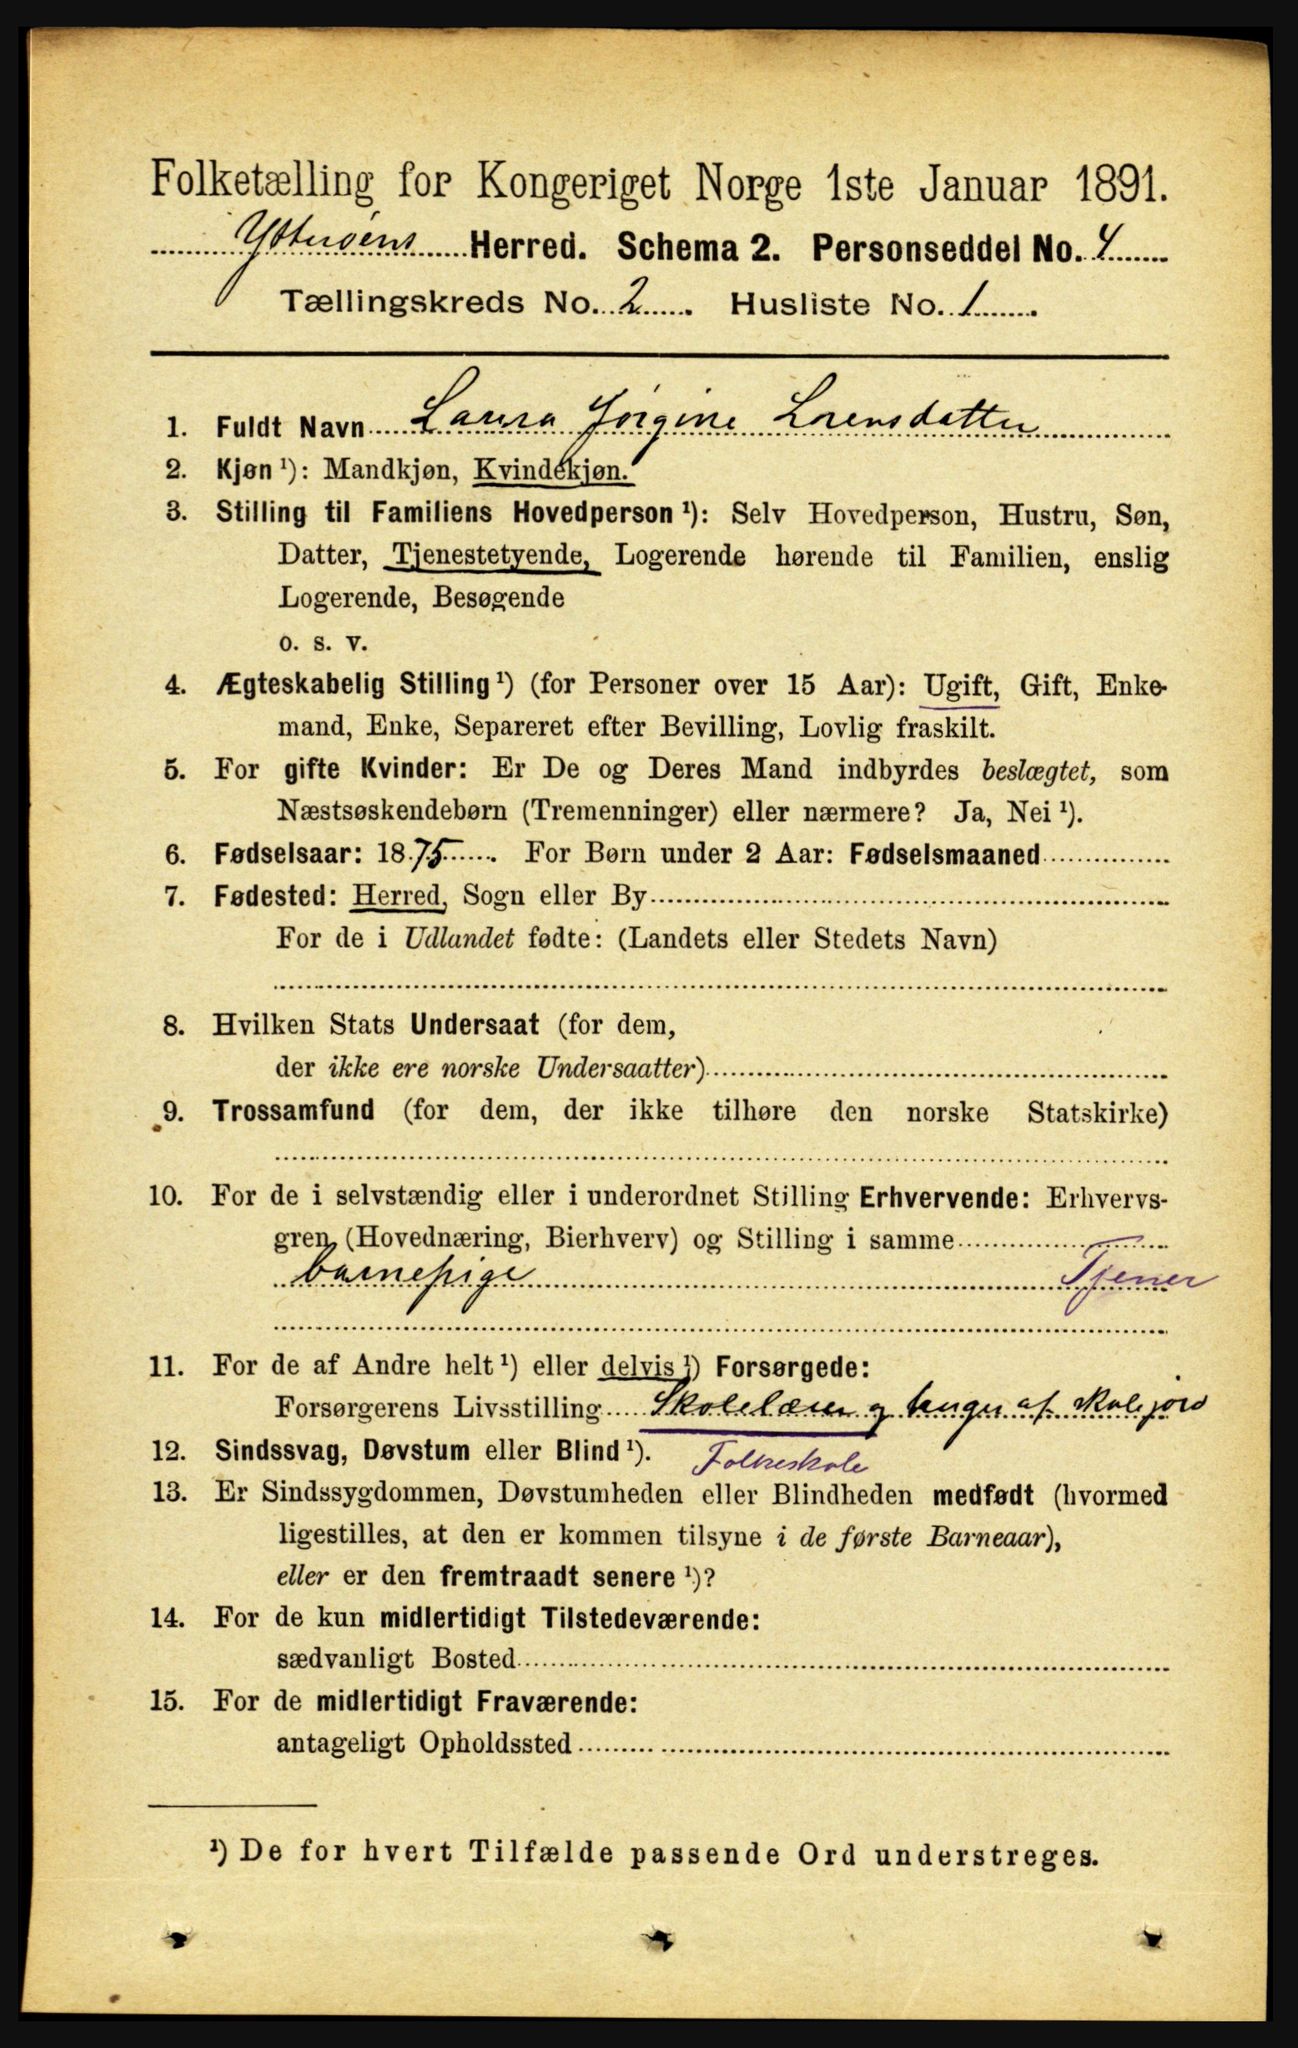 Folketælling for Kongeriget Norge 1ste Januar 1891.
Ytterøens Herred. Schema 2. Personseddel No. 4
Tællingskreds No. 2. Husliste No. 1.
1. Fuldt Navn Laura Jørgine Lorensdatter
2. Kjøn ¹): Mandkjøn, Kvindekjøn.
3. Stilling til Familiens Hovedperson ¹): Selv Hovedperson, Hustru, Søn,
Datter, Tjenestetyende, Logerende hørende til Familien, enslig
Logerende, Besøgende
o. s. v.
4. Ægteskabelig Stilling ¹) (for Personer over 15 Aar): Ugift, Gift, Enke-
mand, Enke, Separeret efter Bevilling, Lovlig fraskilt.
5. For gifte Kvinder: Er De og Deres Mand indbyrdes beslægtet, som
Næstsøskendebørn (Tremenninger) eller nærmere? Ja, Nei ¹).
6. Fødselsaar: 1875. For Børn under 2 Aar: Fødselsmaaned
7. Fødested: Herred, Sogn eller By
For de i Udlandet fødte: (Landets eller Stedets Navn)
8. Hvilken Stats Undersaat (for dem,
der ikke ere norske Undersaatter)
9. Trossamfund (for dem, der ikke tilhøre den norske Statskirke)
10. For de i selvstændig eller i underordnet Stilling Erhvervende: Erhvervs-
gren (Hovednæring, Bierhverv) og Stilling i samme
barnepige Tjener
11. For de af Andre helt ¹) eller delvis ¹) Forsørgede:
Forsørgerens Livsstilling Skolelærer og bruger af skolejord
12. Sindssvag, Døvstum eller Blind ¹). Folkeskole
13. Er Sindssygdommen, Døvstumheden eller Blindheden medfødt (hvormed
ligestilles, at den er kommen tilsyne i de første Barneaar),
eller er den fremtraadt senere ¹)?
14. For de kun midlertidigt Tilstedeværende:
sædvanligt Bosted
15. For de midlertidigt Fraværende:
antageligt Opholdssted
¹) De for hvert Tilfælde passende Ord understreges.